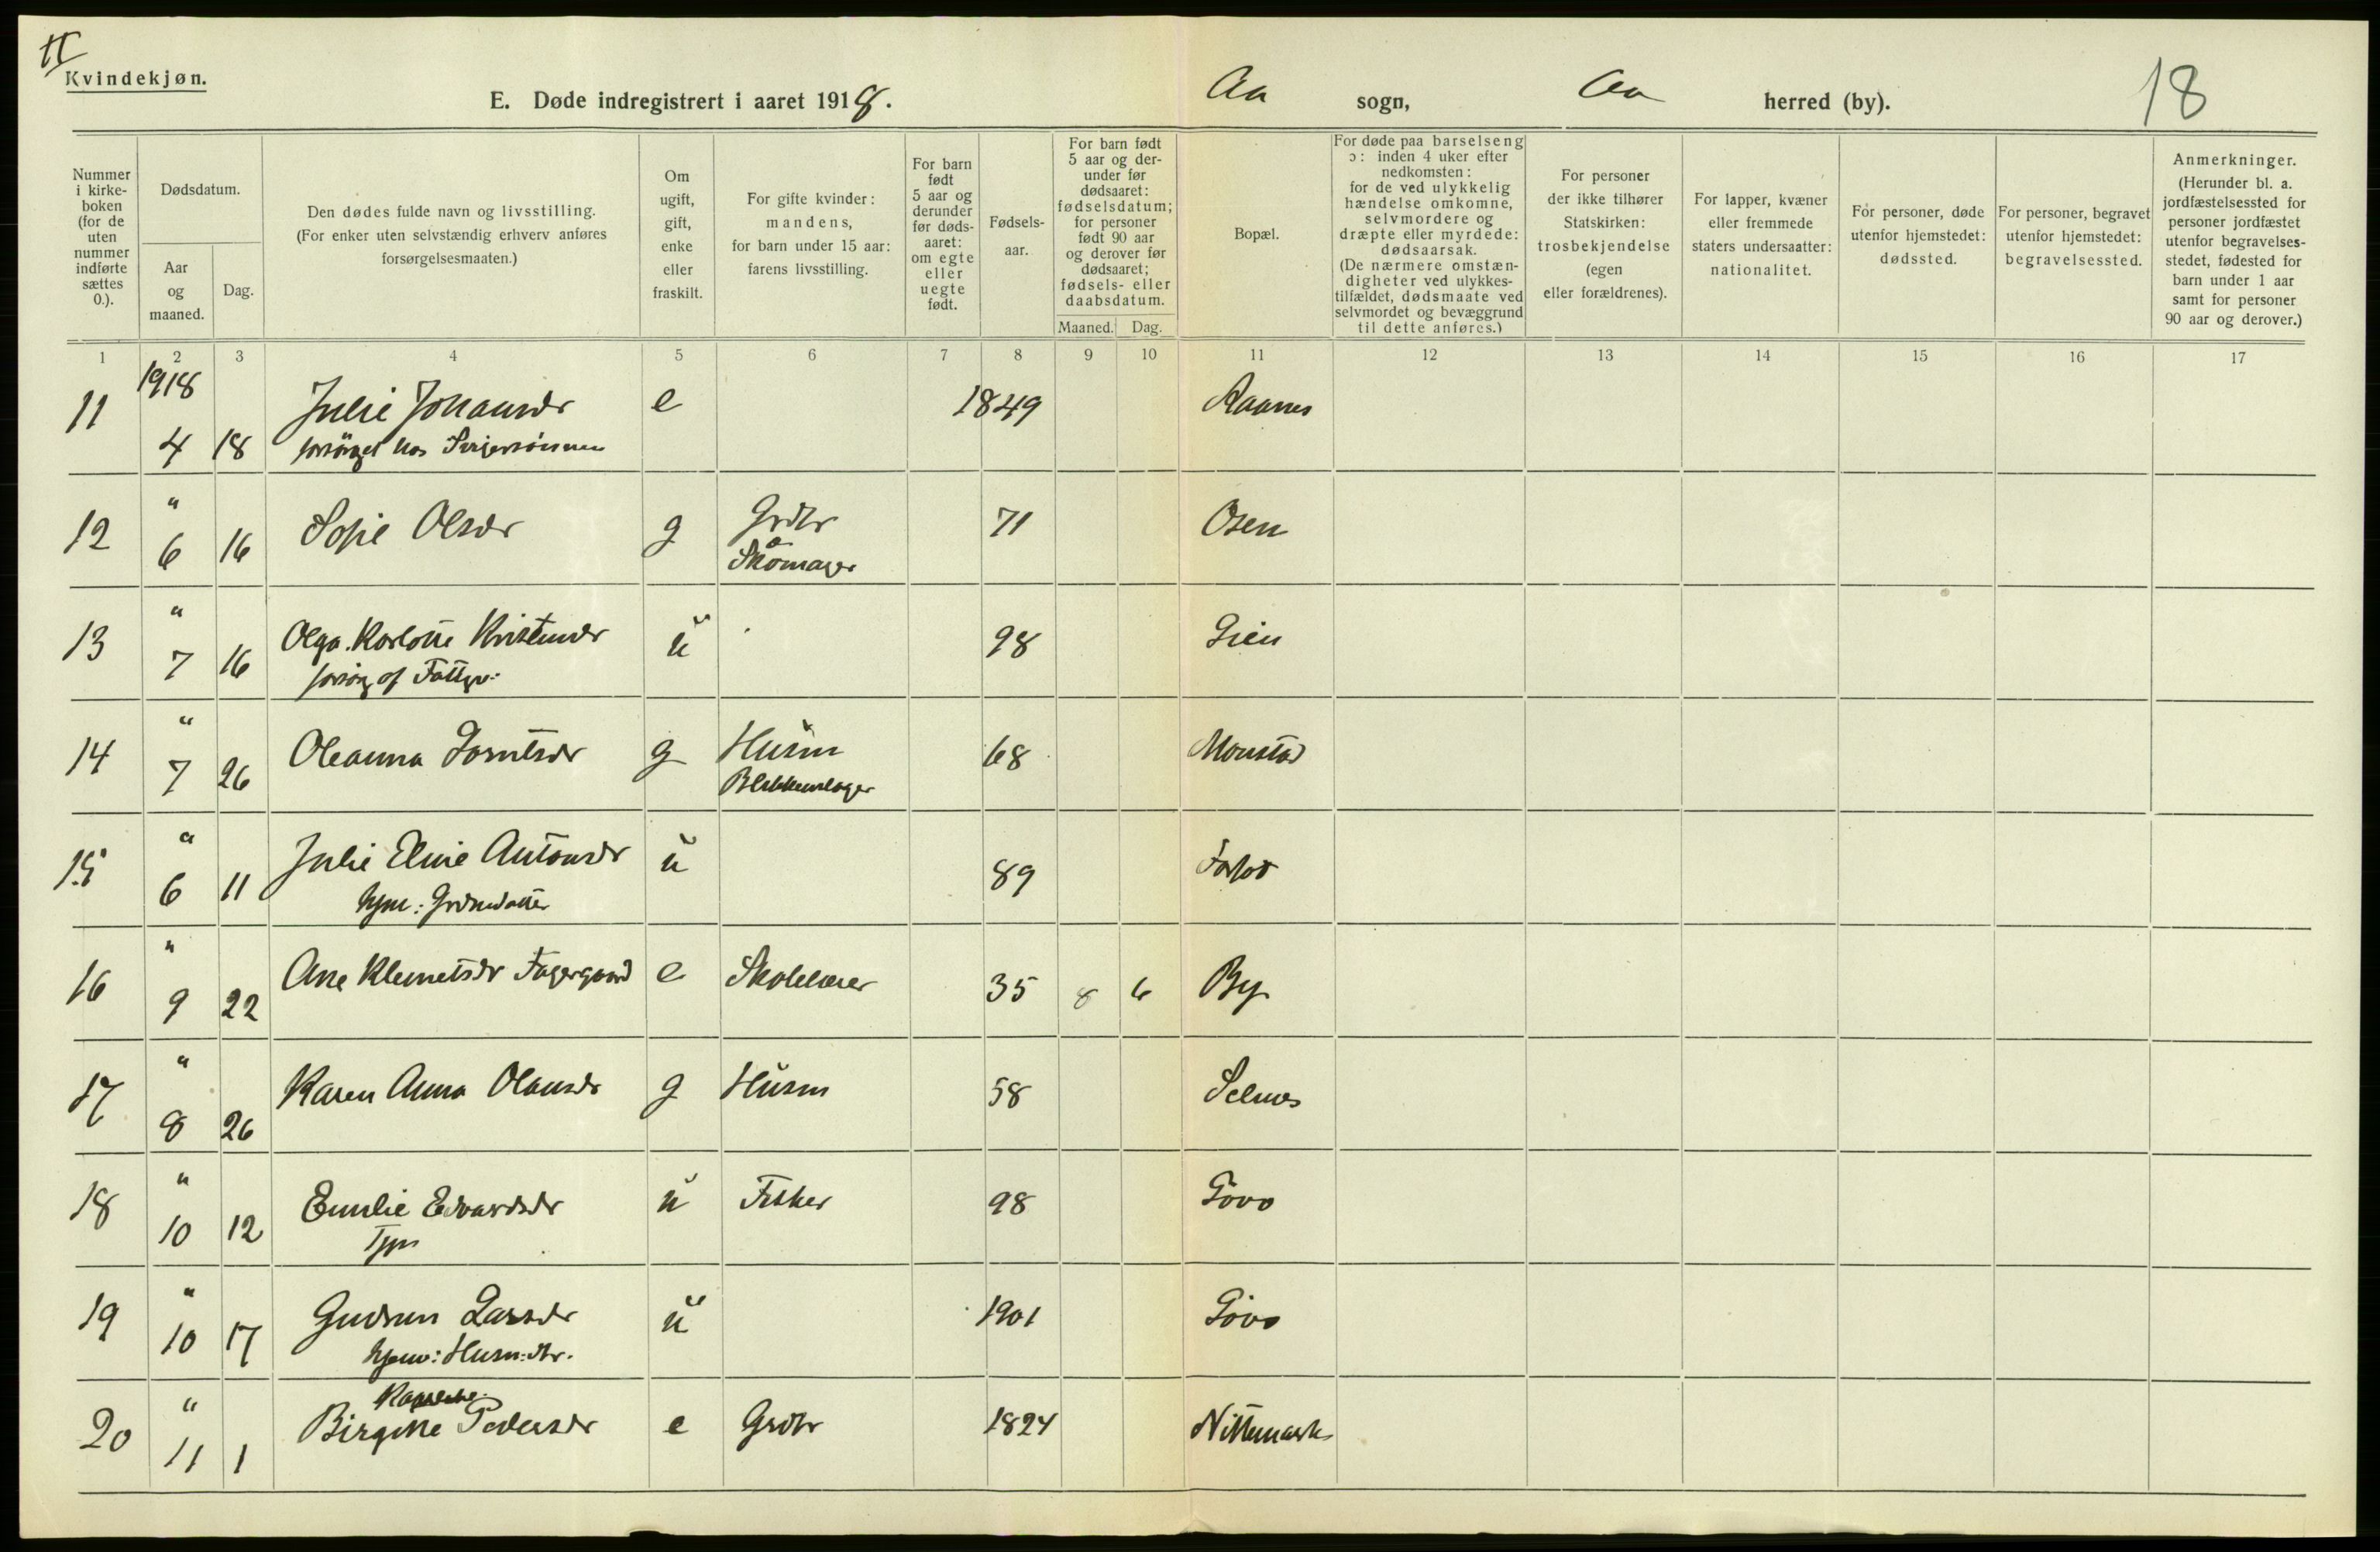 II
Kvindekjøn.
E. Døde indregistrert i aaret 1918.
Aa sogn, Aa herred (by).
18
Nummer i kirke- boken (for de uten nummer indførte sættes 0.).
Dødsdatum.
Aar og maaned.
Dag.
Den dødes fulde navn og livsstilling.
(For enker uten selvstændig erhverv anføres forsørgelsesmaaten.)
Om ugift, gift, enke eller fraskilt.
For gifte kvinder: mandens, for barn under 15 aar: farens livsstilling.
For barn født 5 aar og derunder før døds- aaret: om egte eller uegte født.
Fødsels- aar.
For barn født 5 aar og der- under før dødsaaret: fødselsdatum; for personer født 90 aar og derover før dødsaaret; fødsels- eller daabsdatum.
Maaned. Dag.
Bopæl.
For døde paa barselseng ɔ: inden 4 uker efter nedkomsten: for de ved ulykkelig hændelse omkomne, selvmordere og dræpte eller myrdede: dødsaarsak.
(De nærmere omstæn- digheter ved ulykkes- tilfældet, dødsmaate ved selvmordet og bevæggrund til dette anføres.)
For personer der ikke tilhører Statskirken: trosbekjendelse (egen eller forældrenes).
For lapper, kvæner eller fremmede staters undersaatter: nationalitet.
For personer, døde utenfor hjemstedet: dødssted.
For personer, begravet utenfor hjemstedet: begravelsessted.
Anmerkninger.
(Herunder bl. a. jordfæstelsessted for personer jordfæstet utenfor begravelses- stedet, fødested for barn under 1 aar samt for personer 90 aar og derover.)
1 2 3 4 5 6 7 8 9 10 11 12 13 14 15 16 17
1918
11 4 18 Julie Johansdr e 1849 Aaanes
forsørget hos
12 " 6 16 Sofie Olsdr g Grdbr 71 Osen
Skomager
13 " 7 16 Olga Karlotte Kristensdr u 98 Lien
forsørg af Fattigv.
14 " 7 26 Oleanna Larntsdr g Husm 68 Monstad
Blikkenslager
15 " 6 11 Julie Eline Antonsdr u 89
hjm: Grdmdatter
16 " 9 22 Ane Klemetsdr Fagergaard e Skolelærer 35 8 6 By
17 " 8 26 Karen Anna Olausdr g Husm 58 Selnes
18 " 10 12 Emilie Edvardsdr u Fisker 98
Tjpi
19 " 10 17 Gudrun Larsdr u 1901
hjemv: Husm:dtr.
20 " 11 1 Birgitte Pedersdr e Grdbr 1824 Nittemark